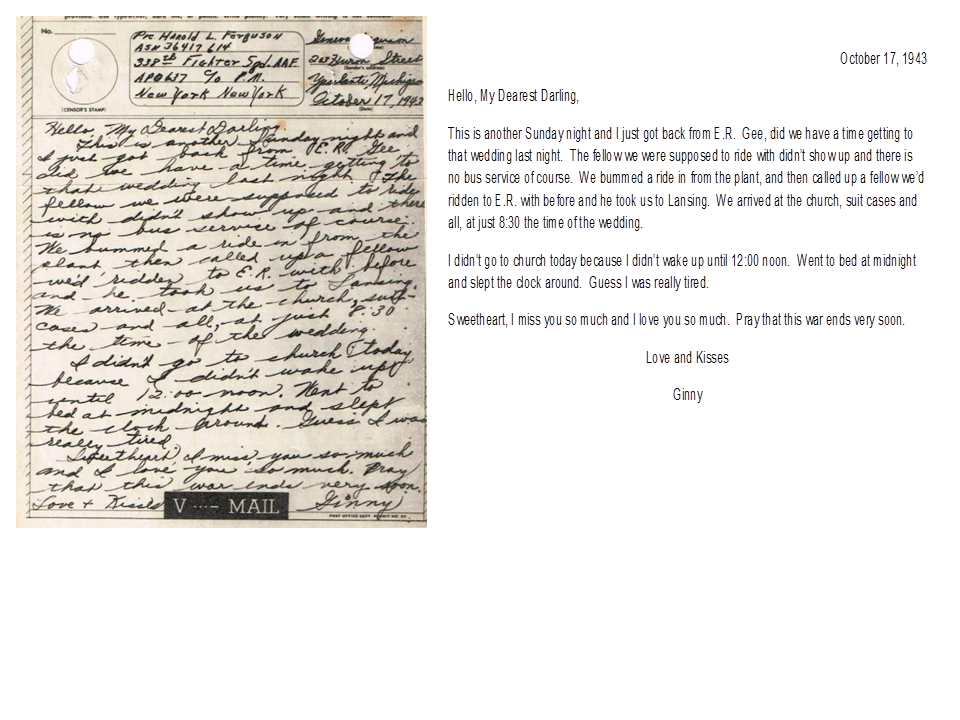 No.
(CENSOR'S STAMP)
Pvc Harold L. Ferguson
ASN 36417614
338th Fighter Sqd. AAF
APO 637 c/o P.M.
New York New York
Geneva
203 Huron Street
(Sender's address)
Ypsilanti, Michigan
October 17, 1943
(Date)
Hello, My Dearest Darling,
This is another Sunday night and
I just got back from E.R. Gee
did we have a time getting to
that wedding last night. The
fellow we were supposed to ride
with didn't show up and there
is no bus service of course.
We bummed a ride in from the
plant, then called up a fellow
we'd ridden to E.R. with before
and he took us to Lansing.
We arrived at the church, suit-
cases and all, at just 8:30
the time of the wedding.
I didn't go to church today
because I didn't wake up
until 12:00 noon. Went to
bed at midnight and slept
the clock around. Guess I was
really tired.
Sweetheart, I miss you so much
and I love you so much. Pray
that this war ends very soon.
Love + Kisses
V ···- MAIL
Ginny
October 17, 1943
Hello, My Dearest Darling,
This is another Sunday night and I just got back from E.R. Gee, did we have a time getting to
that wedding last night. The fellow we were supposed to ride with didn't show up and there is
no bus service of course. We bummed a ride in from the plant, and then called up a fellow we'd
ridden to E.R. with before and he took us to Lansing. We arrived at the church, suit cases and
all, at just 8:30 the time of the wedding.
I didn't go to church today because I didn't wake up until 12:00 noon. Went to bed at midnight
and slept the clock around. Guess I was really tired.
Sweetheart, I miss you so much and I love you so much. Pray that this war ends very soon.
Love and Kisses
Ginny